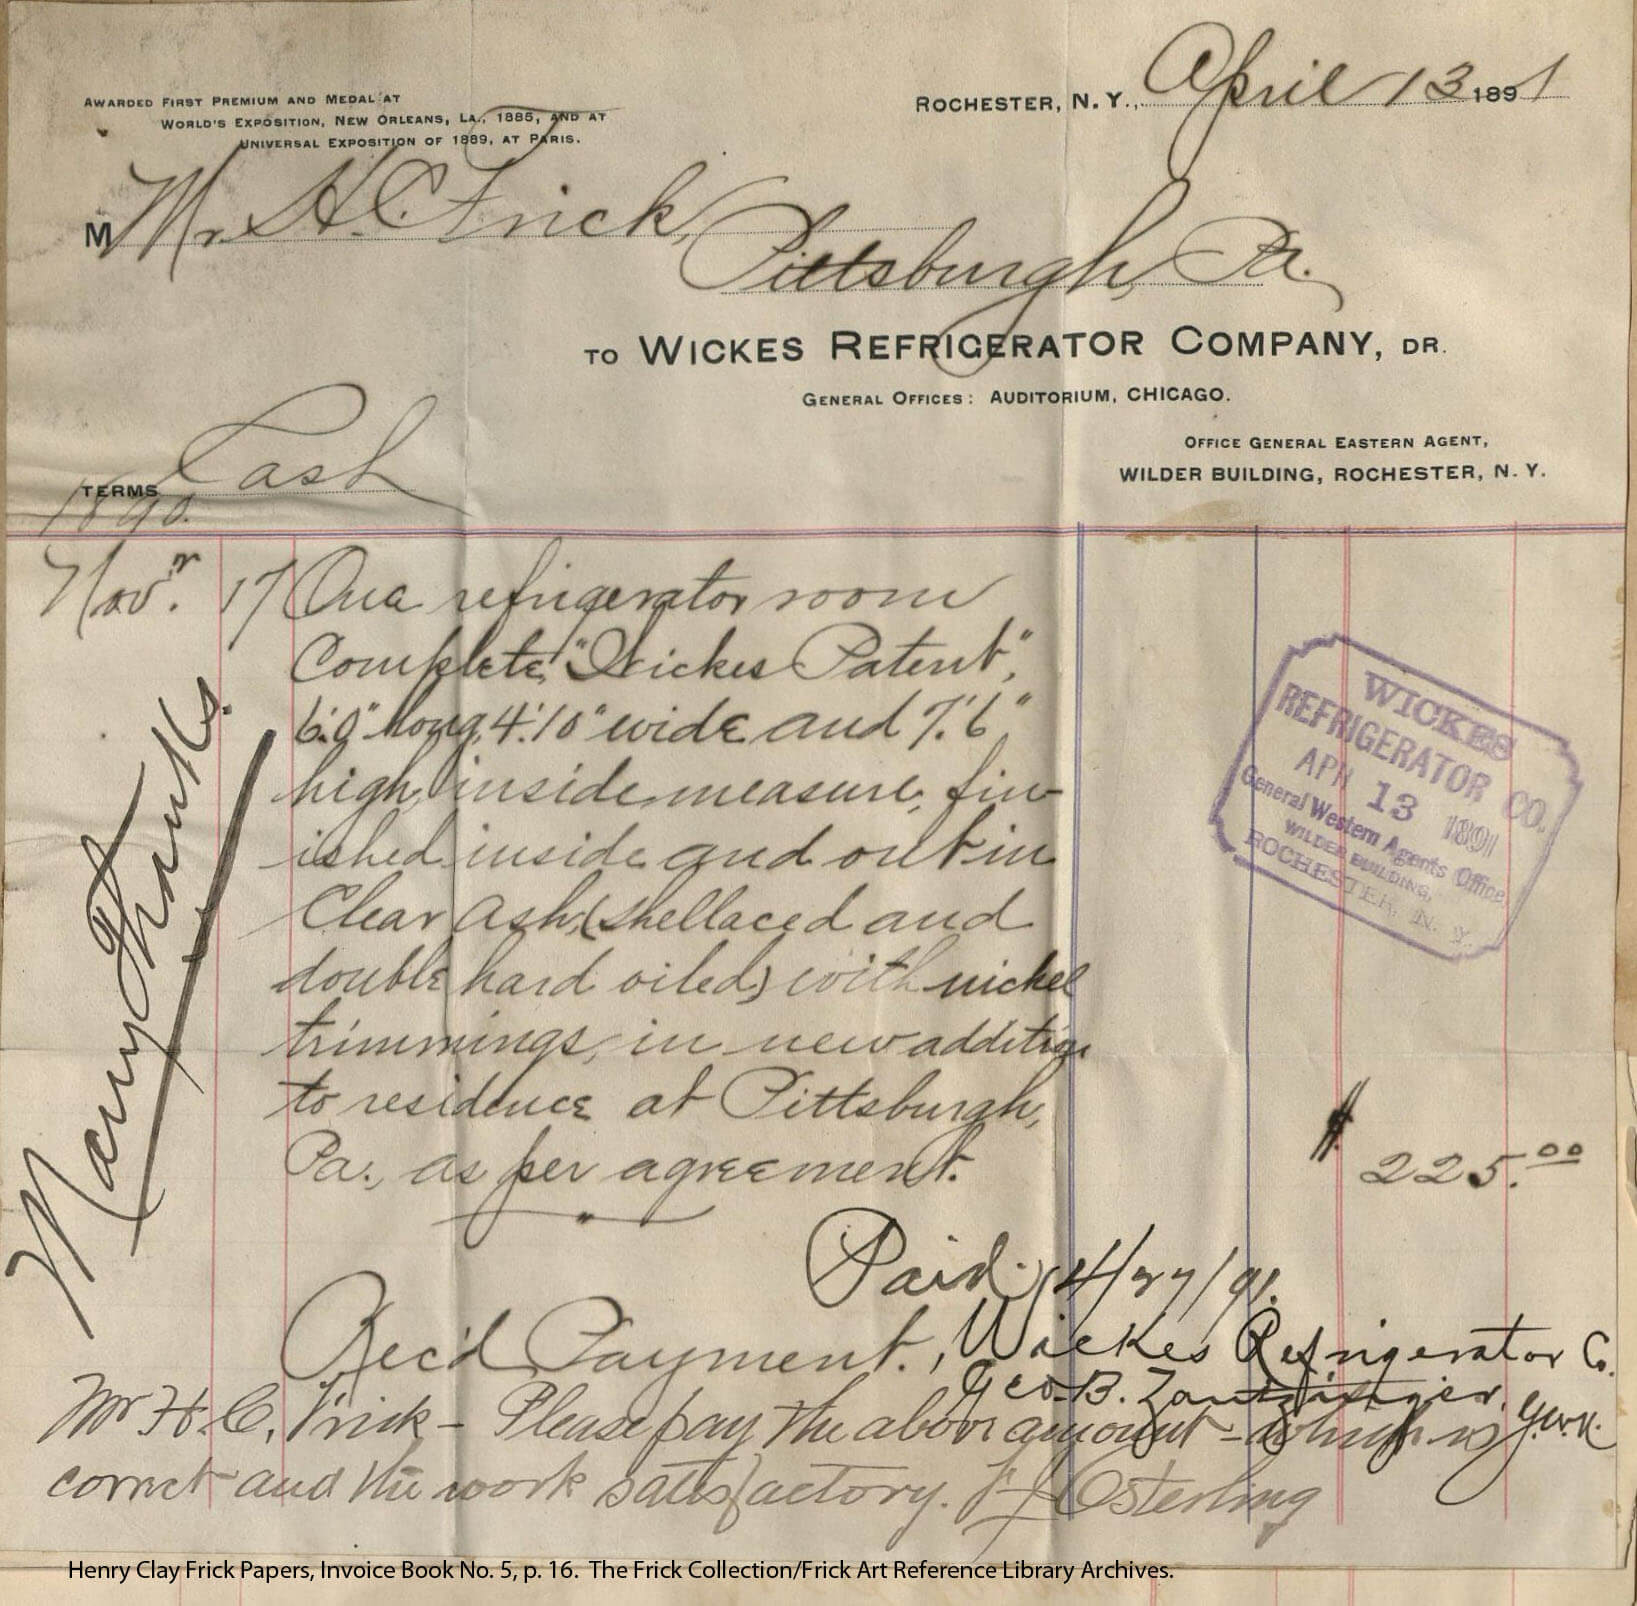 AWARDED FIRST PREMIUM AND MEDAL AT
WORLD'S EXPOSITION, NEW ORLEANS, LA., 1885, AND AT
UNIVERSAL EXPOSITION OF 1889, AT PARIS.
ROCHESTER, N. Y., April 13 1891
M Mr H. C. Frick,
Pittsburgh, Pa.
TO WICKES REFRIGERATOR COMPANY, DR.
GENERAL OFFICES: AUDITORIUM, CHICAGO.
OFFICE GENERAL EASTERN AGENT,
WILDER BUILDING, ROCHESTER, N. Y.
TERMS Cash
1890.
Novr. 17 One refrigerator room
Complete, "Wickes Patent",
6'.0" long, 4'.10" wide and 7'.6"
high, inside measure, fin-
ished inside and out in
Clear Ash, (shellaced and
double hard oiled) with nickel
trimmings, in new addition
to residence at Pittsburgh,
Pa., as per agreement.
$ 225.00
Many Thanks.
WICKES
REFRIGERATOR CO.
APR 13 1891
General Western Agents Office
WILDER BUILDING,
ROCHESTER, N. Y.
Paid 4/27/91.
Rec'd Payment, Wickes Refrigerator Co.
Geo. B.
Mr H. C. Frick - Please pay the above amount - which is
correct and the work satisfactory. F J Osterling
Henry Clay Frick Papers, Invoice Book No. 5, p. 16. The Frick Collection/Frick Art Reference Library Archives.